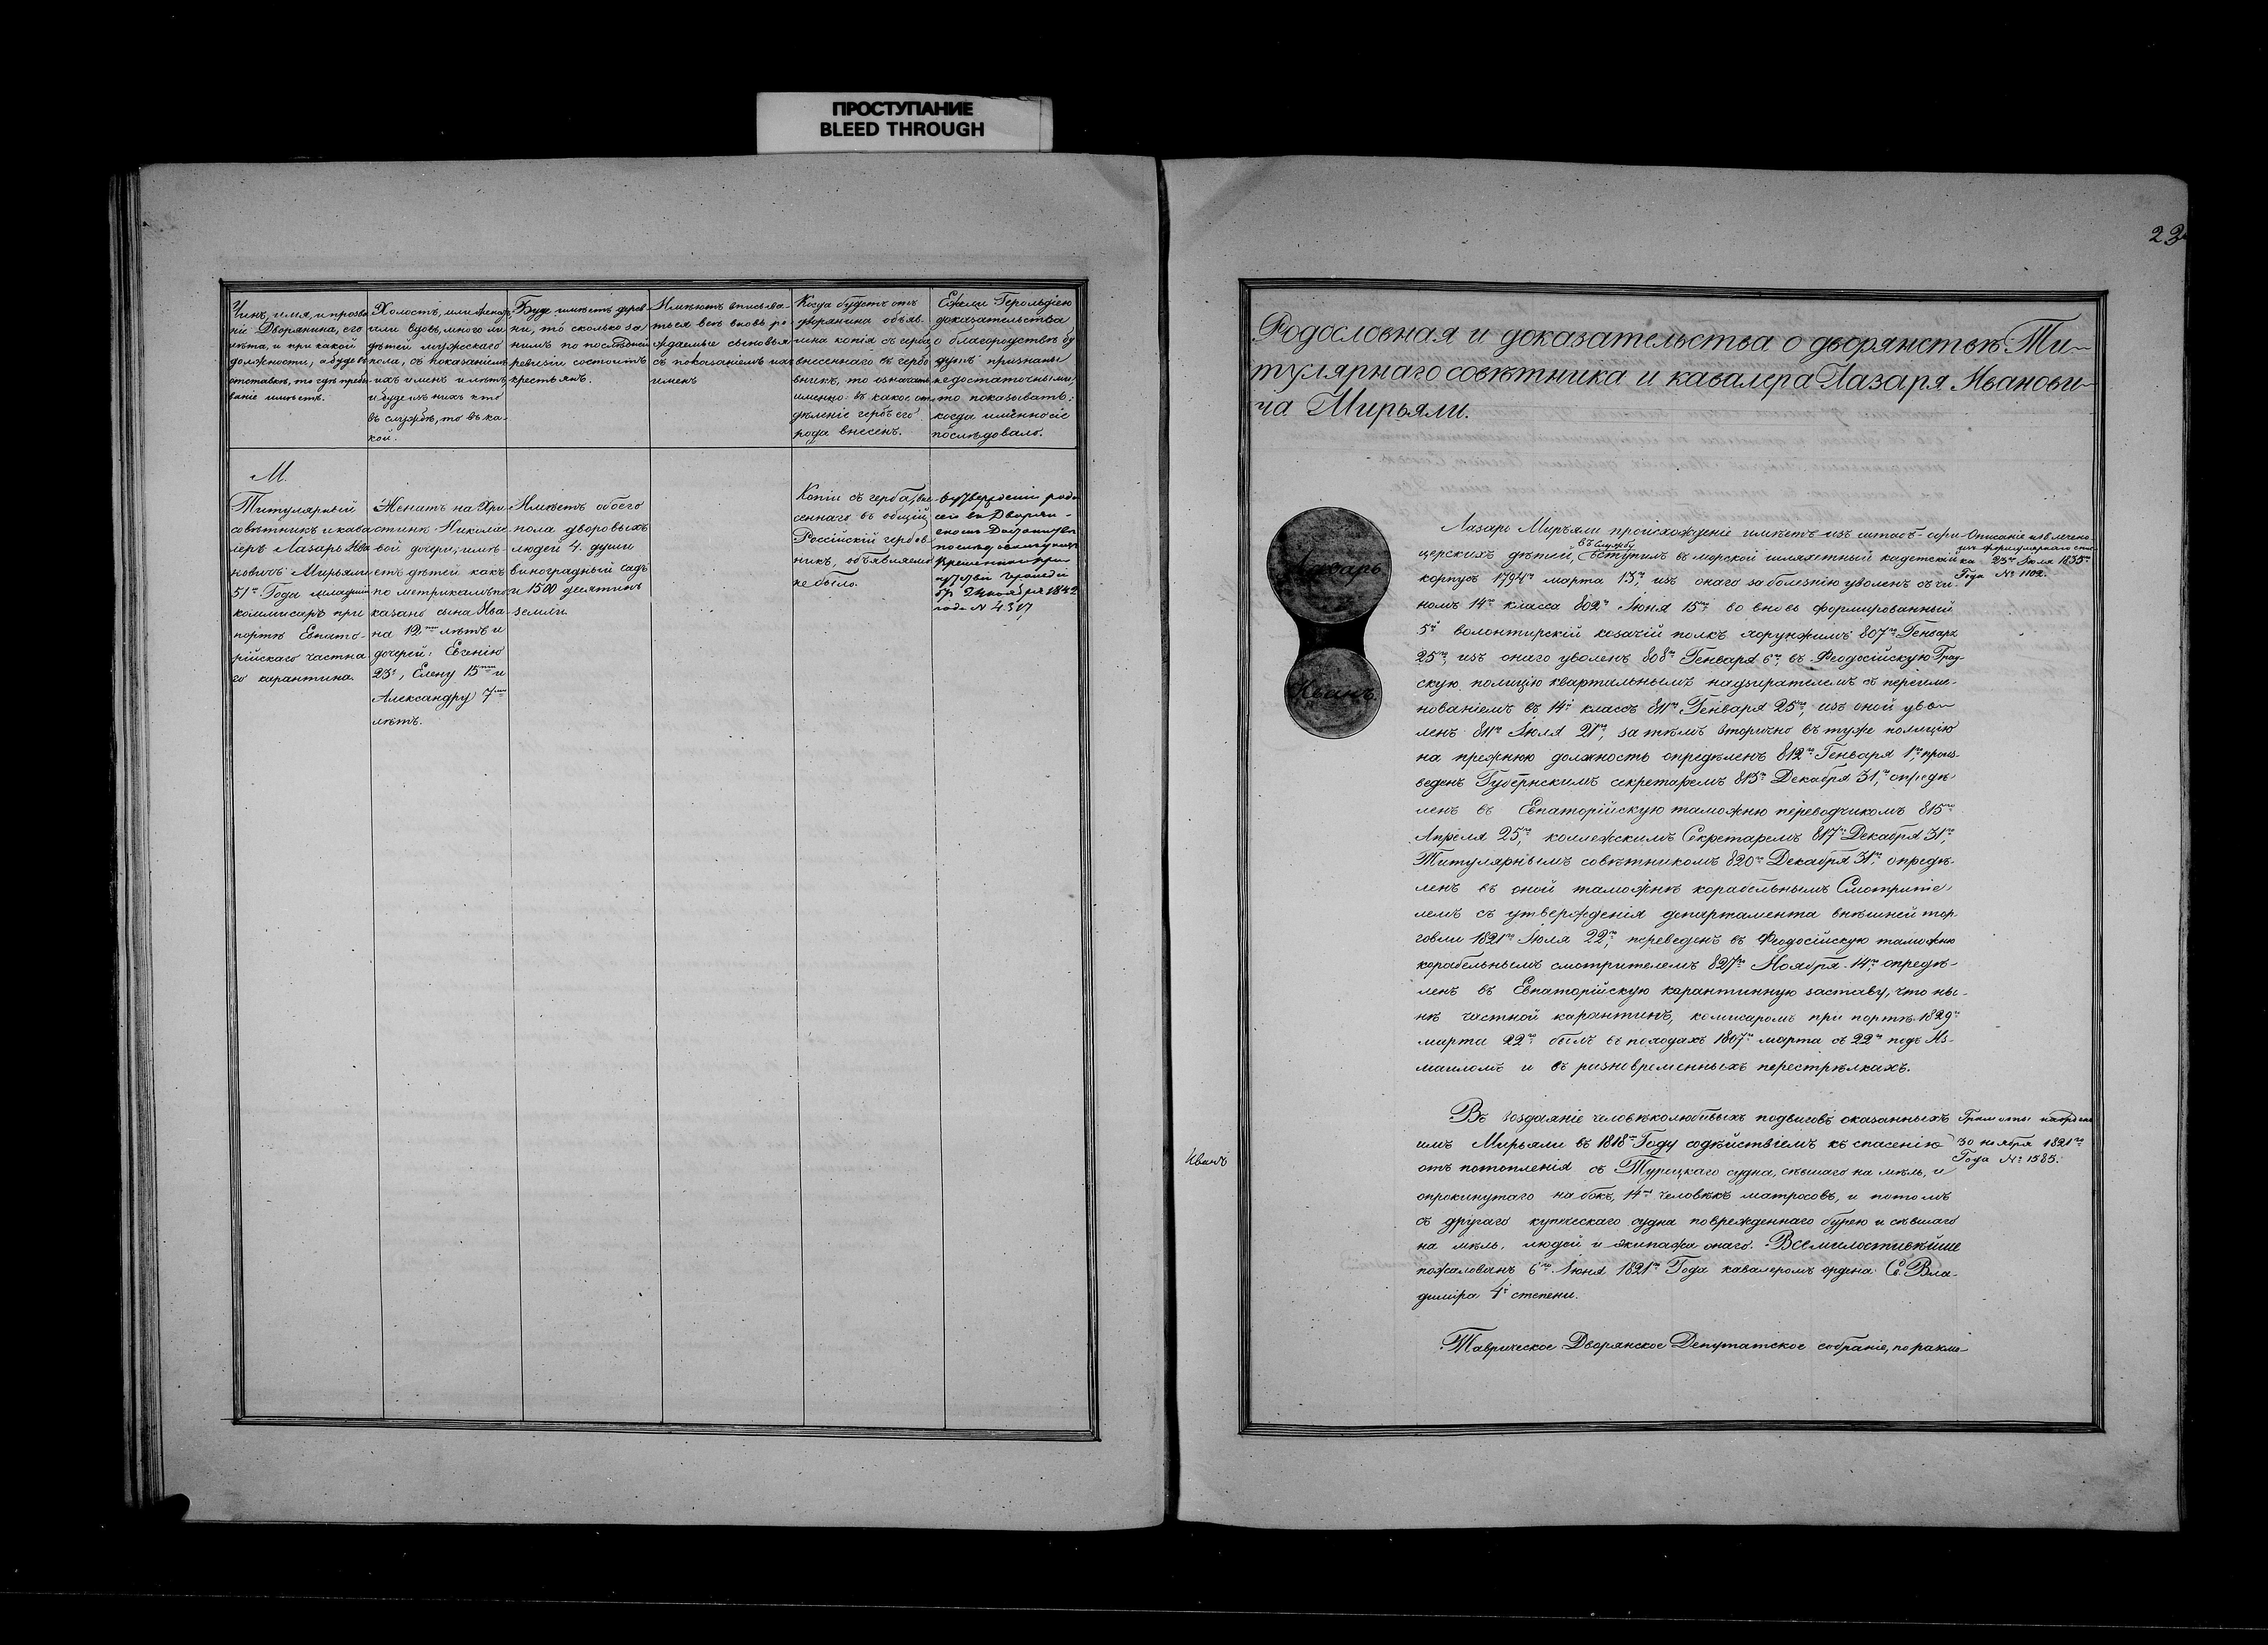 ПРОСТУПАНИЕ
BLEED THROUGH
23
Чинъ, имя, и прозва
ніе Дворянина, его
лѣта, и при какой
должности, а буде въ
отставкѣ, то гдѣ пребы
ваніе имѣетъ.
Холостъ, или женатъ
или вдовъ, много ли
дѣтей мужескаго
пола, съ показаніемъ
ихъ именъ и лѣтъ
и буде изъ нихъ кто
въ службѣ, то въ ка-
кой.
Буде имѣетъ дерев
ни, то сколько за
нимъ по послѣдней
ревизіи состоитъ
крестьянъ.
Имѣютъ вписыва-
ться всѣ вновь ро
ждаемые сыновья
съ показаніемъ ихъ
именъ
Когда будетъ отъ
дворянина объяв-
лена копія съ герба
внесеннаго въ гербо
вникъ, то означать
именно: въ какое от
дѣленіе гербъ его
рода внесенъ.
Ежели Герольдіею
доказательства
о благородствѣ бу
дутъ признаны
недостаточными,
то показывать:
когда именно сіе
послѣдовало.
М.
Титулярный
совѣтникъ и кава
леръ Лазарь Ива
новичъ Мирьяли
51го Года младшій
коммисаръ при
портѣ Евпато-
рійскаго частна
го карантина.
Женатъ на Хри
стинѣ Николае
вой дочери, имѣ-
етъ дѣтей какъ
по метрикамъ по
казано сына Ива
на 12ти лѣтъ и
дочерей: Евгенію
23х, Елену 15ти и
Александру 7ми
лѣтъ.
Имѣетъ обоего
пола дворовыхъ
людей 4. души
виноградный садъ
и 1500 десятинъ
земли.
Копіи съ герба, вне
сеннаго въ общій
Россійскій гербов
никъ, объявляемо
не было.
Объ утвержденіи рода
сего въ Дворян-
скомъ Достоинствѣ
послѣдовалъ указъ
24 ноября 1842
года № 4317
Родословная и доказательства о дворянствѣ Ти-
тулярнаго совѣтника и кавалера Лазаря Иванови-
ча Мирьяли.
Лазарь
Иванъ.
Лазарь Мирьяли происхожденіе имѣетъ изъ штабъ-офи
церскихъ дѣтей, въ службу вступилъ въ морской шляхетный кадетскій
корпусъ 1794го марта 13го изъ онаго за болезнію уволенъ съ чи-
номъ 14го класса 802го Іюня 15го во вновь формированный
5й волонтирскій козачій полкъ хорунжимъ 807го Генваря
25го, изъ онаго уволенъ 808го Генваря 6го, въ Феодосійскую Град-
скую полицію квартальнымъ надзирателемъ съ переиме-
нованіемъ въ 14й классъ 811го Генваря 25го, изъ оной уво-
ленъ 811го Іюля 21го, за тѣмъ вторично въ туже полицію
на прежнюю должность опредѣленъ 812го Генваря 1го, произ-
веденъ Губернскимъ секретаремъ 813го Декабря 31го, опредѣ-
ленъ въ Евпаторійскую таможню переводчикомъ 815го
Апреля 25го, коллежскимъ Секретаремъ 817го Декабря 31го,
Титулярнымъ совѣтникомъ 820го Декабря 31го, опредѣ-
ленъ въ оной таможнѣ корабельнымъ Смотрите-
лемъ съ утвержденія департамента внѣшней тор-
говли 1821го Іюля 22го, переведенъ въ Феодосійскую таможню
корабельнымъ смотрителемъ 827го Ноября 14го, опредѣ-
ленъ въ Евпаторійскую карантинную заставу, что ны-
нѣ частной карантинъ, комисаромъ при портѣ 1829го
марта 22го былъ въ походахъ 1807го марта съ 22го подъ Из-
маиломъ и въ разновременныхъ перестрѣлкахъ.
Описаніе извлечено
изъ формулярнаго спис
ка 23го Іюля 1835го
Года № 1102.
Въ воздаяніе человѣколюбивыхъ подвиговъ оказанныхъ
имъ Мирьяли въ 1818го Году содѣйствіемъ къ спасенію
отъ потопленія съ Турецкаго судна, сѣвшаго на мѣль, и
опрокинутаго на бокъ, 14ти человѣкъ матросовъ, и потомъ
съ другаго купческаго судна поврежденнаго бурею и сѣвшаго
на мѣль, людей и экипажа онаго. Всемилостивѣйше
пожалованъ 6го Іюня 1821го Года кавалеромъ ордена Св. Вла-
диміра 4й степени.
30 ноября 1821го
Года № 1585.
Иванъ
Таврическое Дворянское Депутатское собраніе, по разсмо-